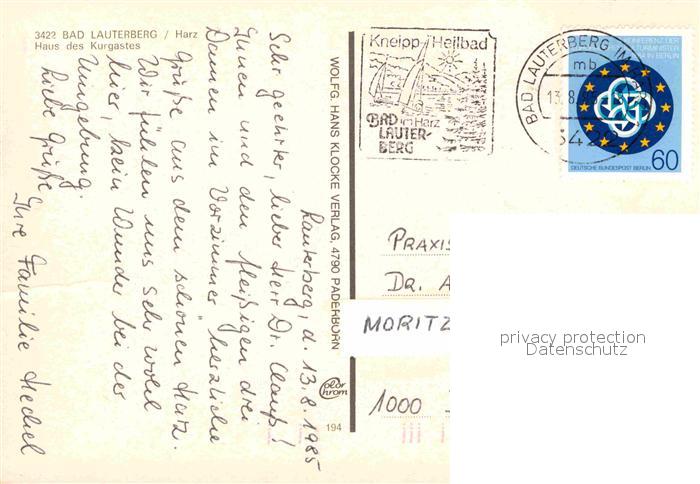 3422 BAD LAUTERBERG / Harz
Haus des Kurgastes
Lauterberg, d. 13.8.1985
Sehr geehrter, lieber Herr Dr. Clauß!
Ihnen und den fleißigen drei
Damen im Vorzimmer herzliche
Grüße aus dem schönen Harz.
Wir fühlen uns sehr wohl
hier, kein Wunder bei der
Umgebung.
Liebe Grüße
Ihre Familie Heckel
WOLFG HANS KLOCKE VERLAG, 4790 PADERBORN
Color
chrom
194
Kneipp-Heilbad
BAD
im Harz
LAUTER-
BERG
BAD LAUTERBERG IM
mb
13.8.
342
KONFERENZ DER
IN BERLIN
60
DEUTSCHE BUNDESPOST BERLIN
PRAXIS
DR. A
MORITZ
1000
privacy protection
Datenschutz